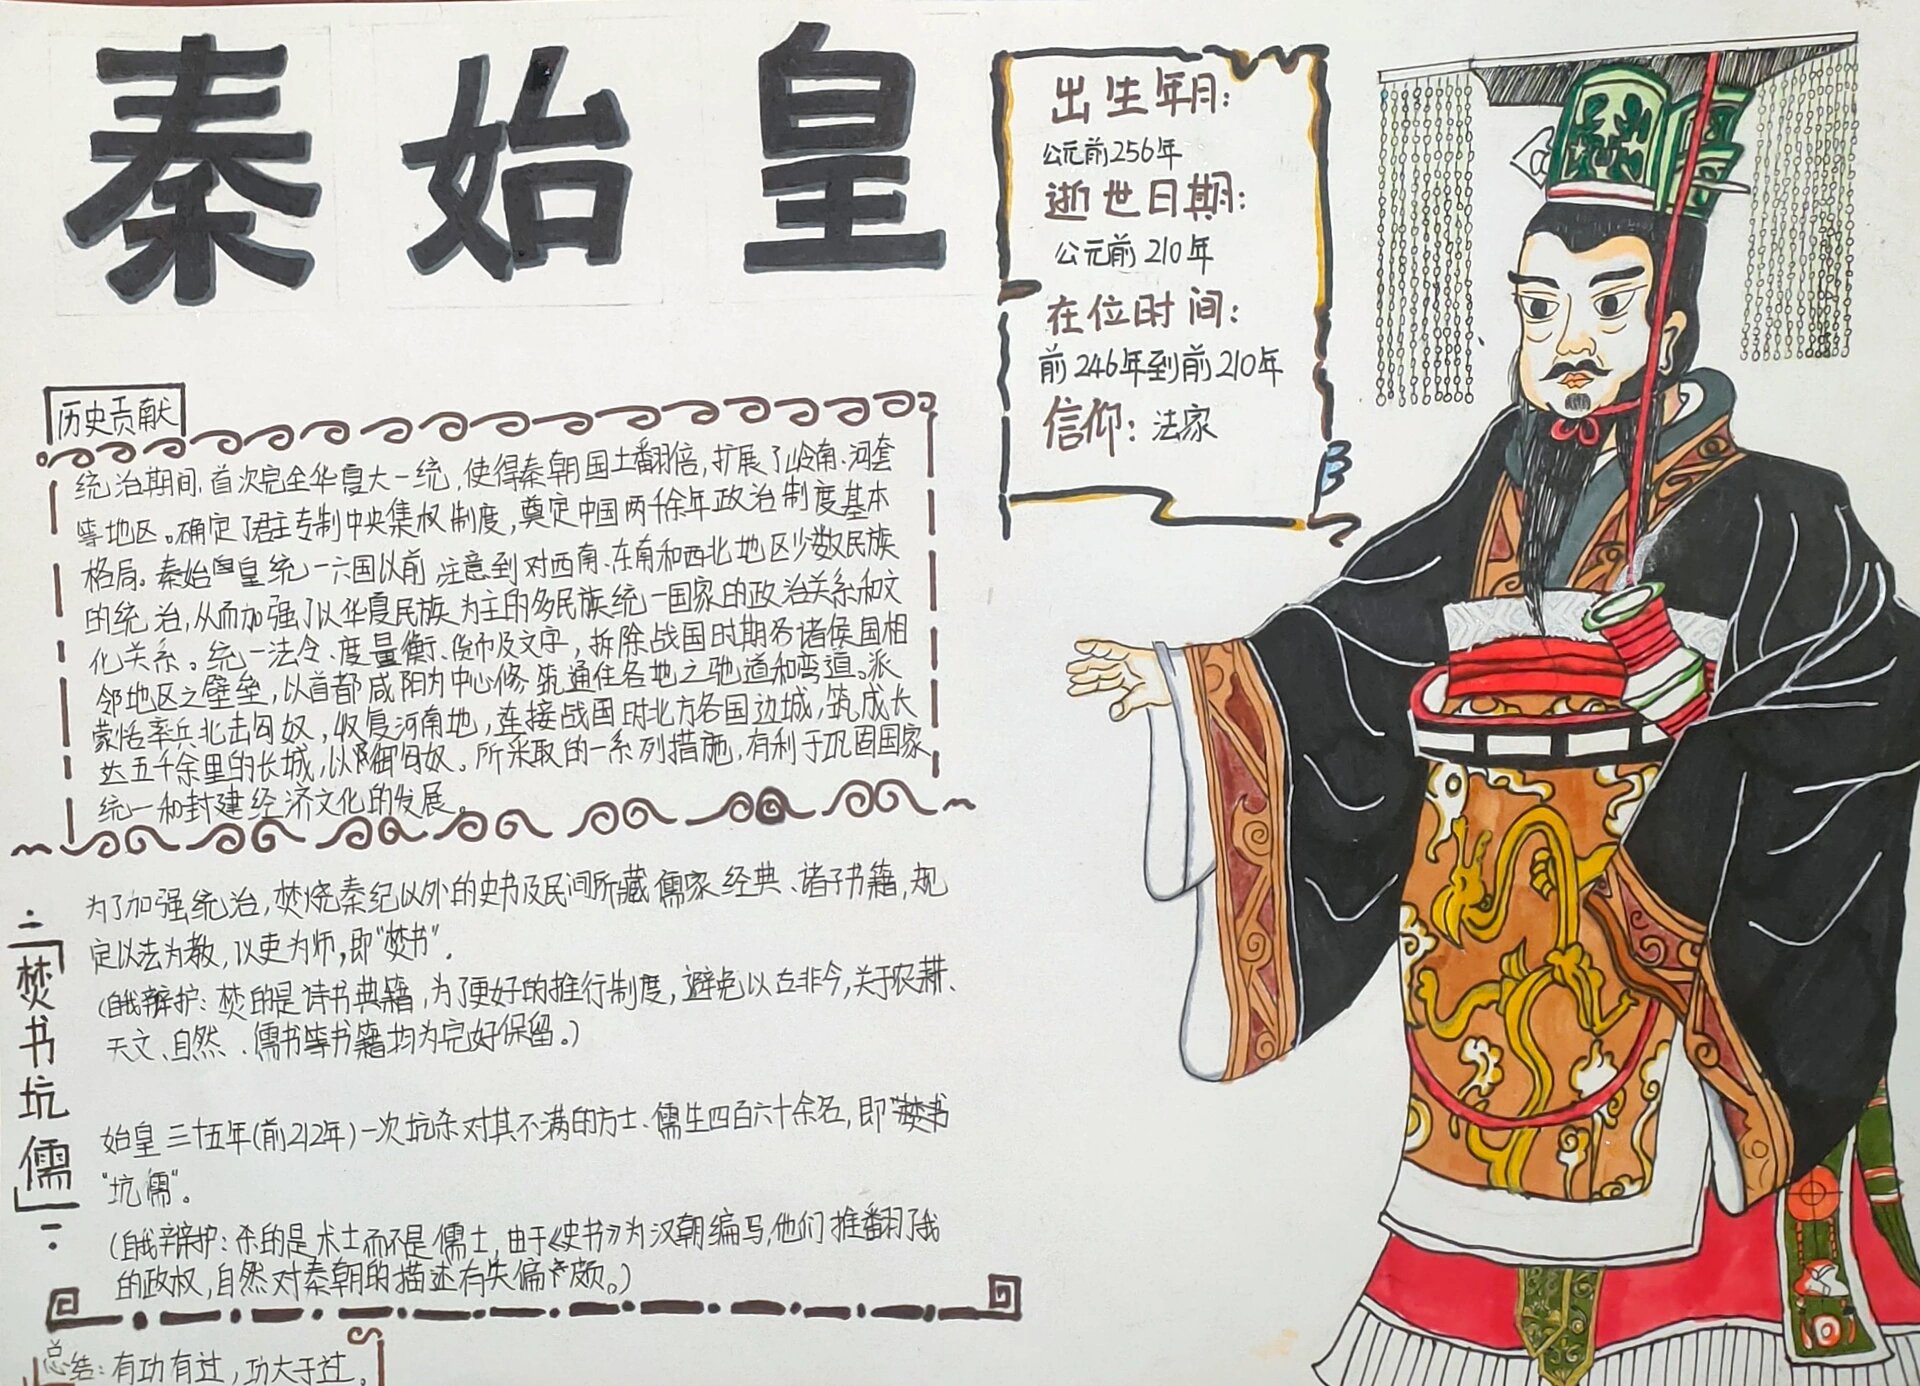 秦始皇
出生年月:
公元前256年
逝世日期:
公元前210年
在位时间:
前246年到前210年
信仰: 法家
历史贡献
统治期间,首次完全华夏大一统,使得秦朝国土翻倍,扩展了岭南、河套
等地区。确定了君主专制中央集权制度,奠定中国两千余年政治制度基本
格局。秦始皇统一六国以前,注意到对西南、东南和西北地区少数民族
的统治,从而加强了以华夏民族为主的多民族统一国家的政治关系和文
化关系。统一法令、度量衡、货币及文字,拆除战国时期各诸侯国相
邻地区之壁垒,以首都咸阳为中心修筑通住各地之驰道和弯道。派
蒙恬率兵北击匈奴,收复河南地,连接战国时北方各国边城,筑成长
达五千余里的长城,以御匈奴。所采取的一系列措施,有利于巩固国家
统一和封建经济文化的发展。
二「焚书坑儒」
为了加强统治,焚烧秦纪以外的史书及民间所藏儒家经典、诸子书籍,规
定以法为教,以吏为师,即"焚书".
(自我辩护: 焚的是诗书典籍,为了更好的推行制度,避免以古非今,关于农耕、
天文、自然、儒书等书籍均为完好保留。)
始皇三十五年(前212年)一次坑杀对其不满的方士、儒生四百六十余名,即
"坑儒"。
(自我辩护: 杀的是术士而不是儒士,由于《史书》为汉朝编写,他们推翻了我
的政权,自然对秦朝的描述有失偏颇。)
总结: 有功有过,功大于过。